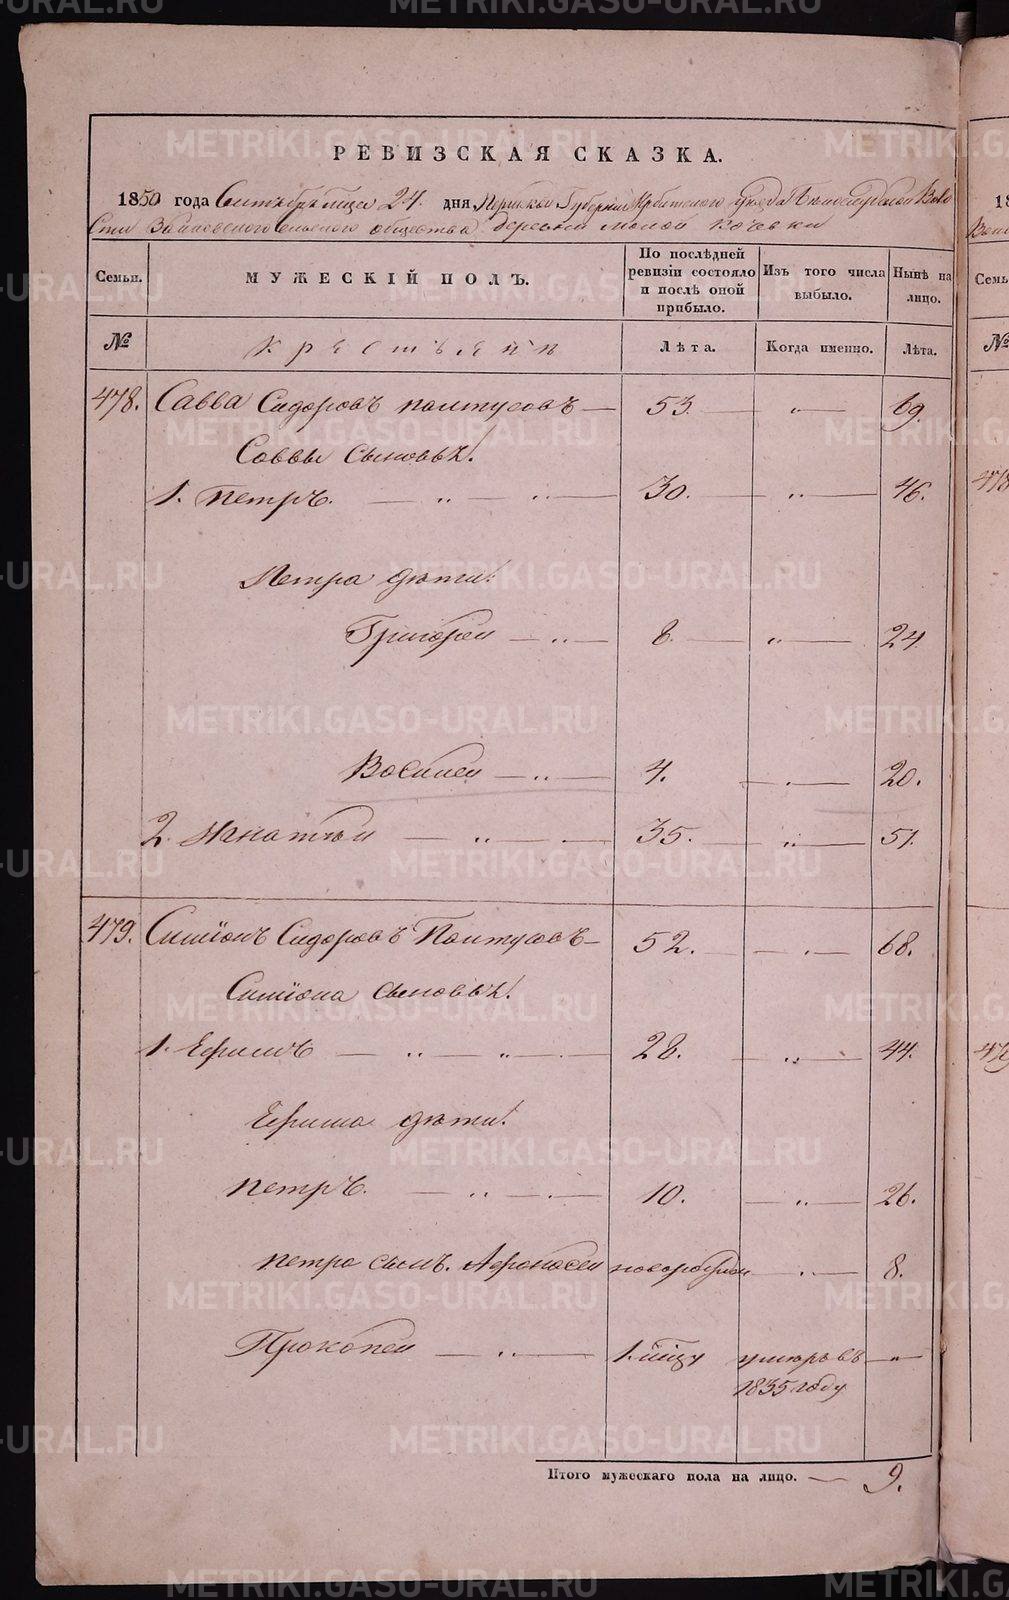 РЕВИЗСКАЯ СКАЗКА.
1850 года Сентября 24. дня, Пермской Губернии Ирбитского уезда Воло
сти сельского общества деревни малой Кочевки
Семьи. МУЖЕСКІЙ ПОЛЪ. По послѣдней ревизіи состояло и послѣ оной прибыло. Изъ того числа выбыло. Нынѣ на лицо.
№ крестьянъ Лѣта. Когда именно. Лѣта.
478. Савва Сидоровъ Полтусовъ — 53. — „ — 69.
Саввы сыновья!
1. Петръ. — „ — „ — 30. — „ — 46.
Петра дѣти!
Григорей — „ — 8. — „ — 24
Василей — „ — 4. — „ — 20.
2. Игнатей — „ — 35. — „ — 51.
479. Симіонъ Сидоровъ Полтусовъ — 52. — „ — 68.
Симіона сыновья!
1. Ефимъ — „ — „ — 28. — „ — 44.
Ефима дѣти!
Петръ. — „ — 10. — „ — 26.
Петра сынъ. Афонасей новорожден — „ — 8.
Прокопей — „ — 1. умеръ въ — „ —
1835 году
Итого мужескаго пола на лицо. — 9.
METRIKI.GASO-URAL.RU